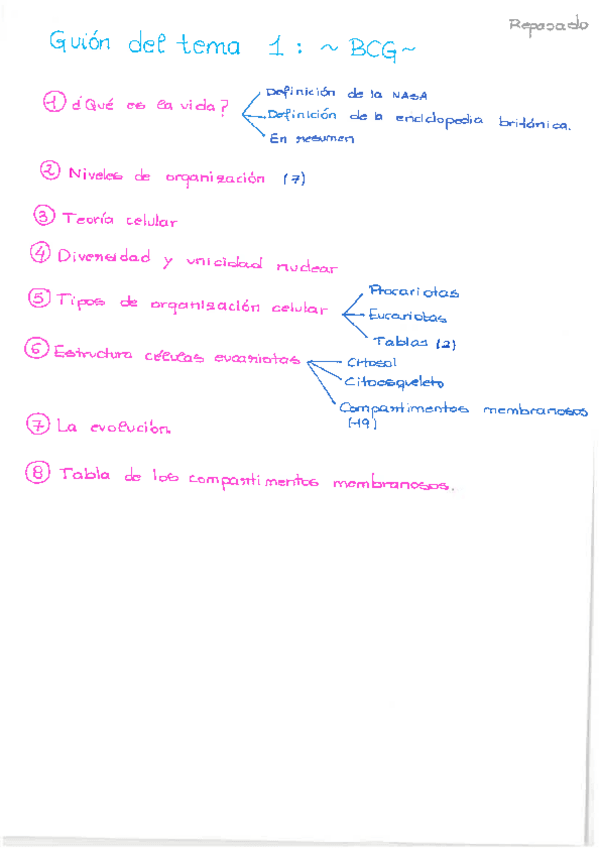 Repasado
Guión del tema 1: ~ BCG ~
① ¿Qué es la vida?
Definición de la NASA
Definición de la enciclopedia británica.
En resumen
② Niveles de organización (7)
③ Teoría celular
④ Diversidad y unicidad nuclear
⑤ Tipos de organización celular
Procariotas
Eucariotas
Tablas (2)
⑥ Estructura células eucariotas
Citosol
Citoesqueleto
Compartimentos membranosos
⑦ La evolución.
⑧ Tabla de los compartimentos membranosos.